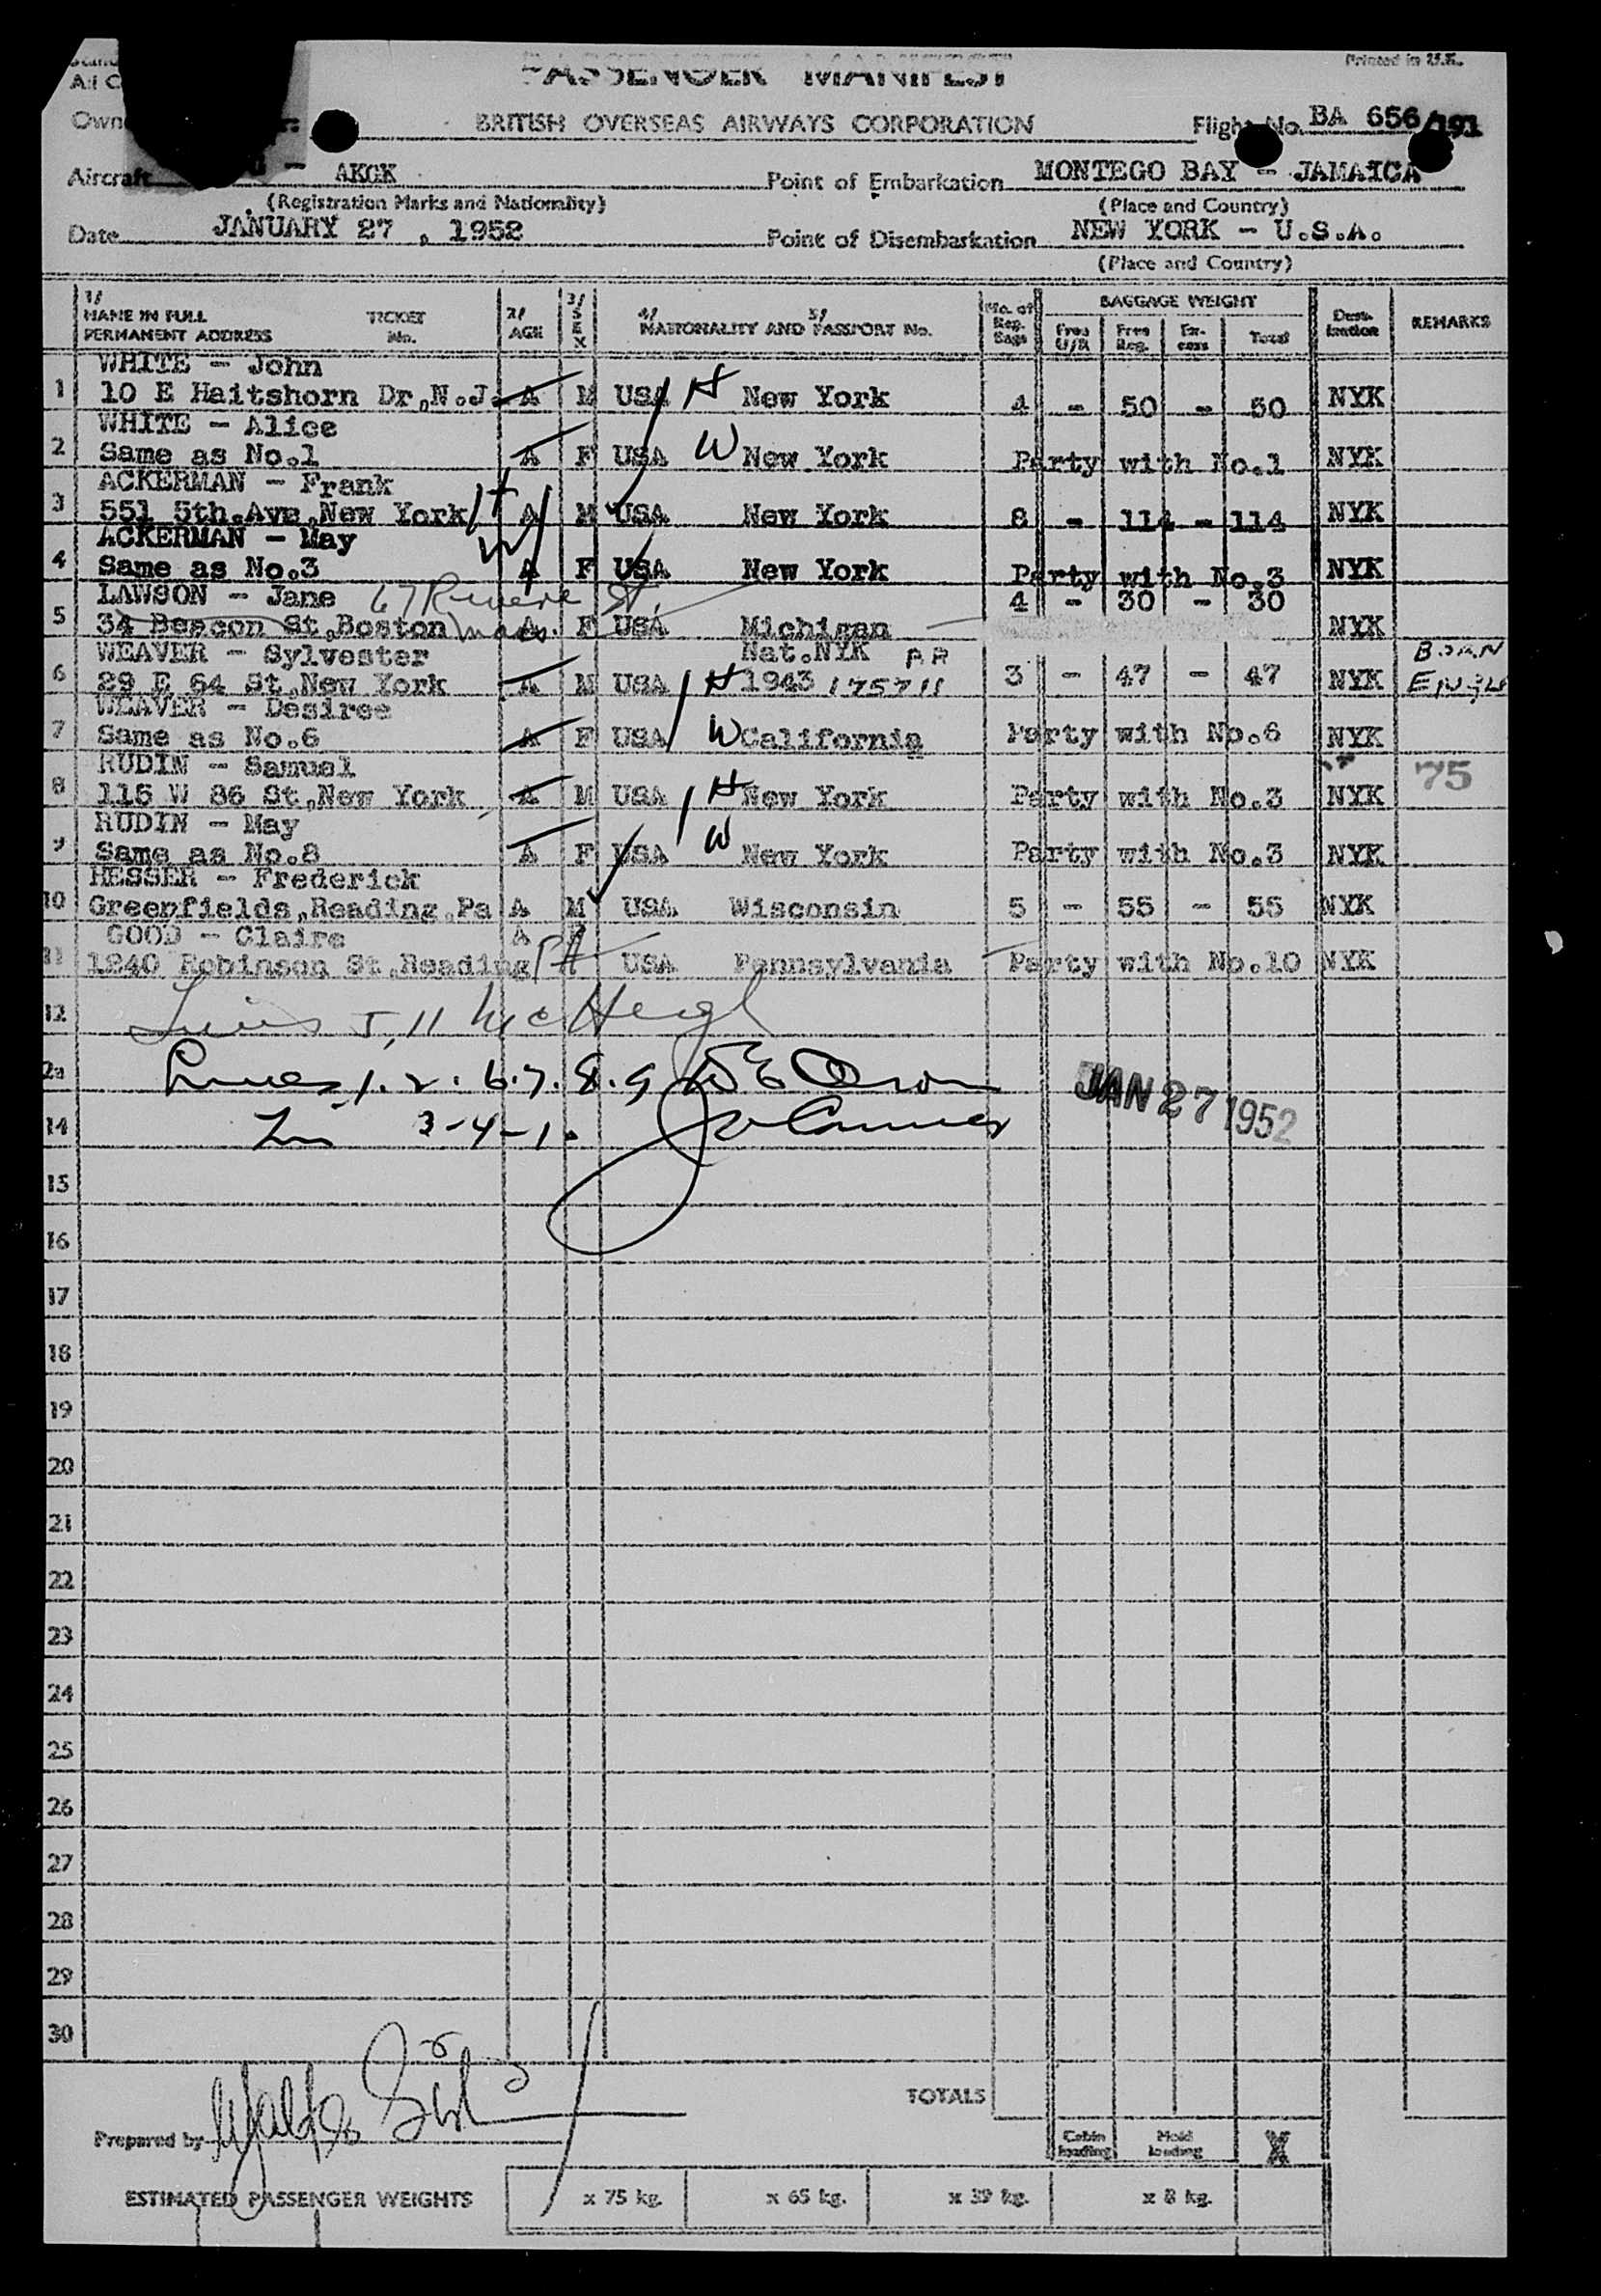 PASSENGER MANIFEST
Printed in U.K.
BRITISH OVERSEAS AIRWAYS CORPORATION Flight No. BA 656/191
Aircraft - AKGK Point of Embarkation MONTEGO BAY - JAMAICA
(Registration Marks and Nationality) (Place and Country)
Date JANUARY 27, 1952 Point of Disembarkation NEW YORK - U.S.A.
(Place and Country)
1/ NAME IN FULL PERMANENT ADDRESS TICKET No. 2/ AGE 3/ SEX 4/ 5/ NATIONALITY AND PASSPORT No. No. of Reg. Bags BAGGAGE WEIGHT Free U/R Free Reg. Ex-cess Total Desti-nation REMARKS
WHITE - John
1 10 E Haitshorn Dr,N.J. A M USA H New York 4 - 50 - 50 NYK
WHITE - Alice
2 Same as No.1 A F USA W New York Party with No.1 NYK
ACKERMAN - Frank
3 551 5th.Ave,New York H A M USA New York 8 - 114 - 114 NYK
ACKERMAN - May
4 Same as No.3 W A F USA New York Party with No.3 NYK
LAWSON - Jane 67 Revere St. 4 - 30 - 30
5 34 Beacon St,Boston Mass. A F USA Michigan NYK
WEAVER - Sylvester Nat.NYK PR BORN
6 29 E 64 St,New York A M USA H 1943 175711 3 - 47 - 47 NYK
WEAVER - Desiree
7 Same as No.6 A F USA W California Party with No.6 NYK
RUDIN - Samuel 75
8 115 W 86 St,New York A M USA H New York Party with No.3 NYK
RUDIN - May
9 Same as No.8 A F USA W New York Party with No.3 NYK
HESSER - Frederick
10 Greenfields,Reading,Pa A M USA Wisconsin 5 - 55 - 55 NYK
GOOD - Claire A
11 1240 Robinson St,Reading PA USA Pennsylvania Party with No.10 NYK
12 Lines 5, 11
Lines 1. 2. 6. 7. 8. 9 JAN 27 1952
14 3-4-10
15
16
17
18
19
20
21
22
23
24
25
26
27
28
29
30
TOTALS
Prepared by
Cabin loading Hold loading X
ESTIMATED PASSENGER WEIGHTS x 75 kg. x 65 kg. x 39 kg. x 8 kg.